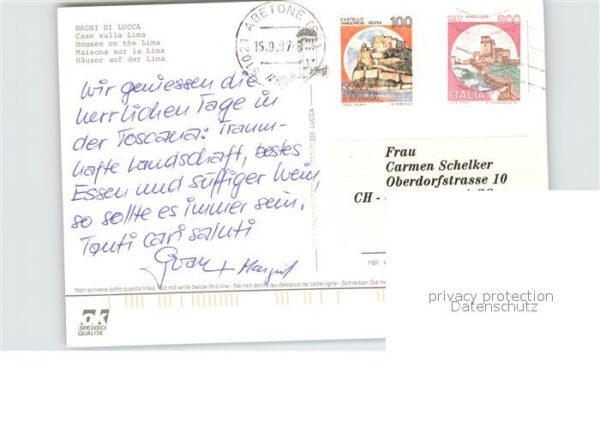 BAGNI DI LUCCA
Case sulla Lima
Houses on the Lima
Maisons sur la Lima
Häuser auf der Lima
Wir geniessen die
herrlichen Tage in
der Toscana: Traum-
hafte Landschaft, bestes
Essen und süffiger Wein,
so sollte es immer sein.
Tanti cari saluti
+ Margrit
Non scrivere sotto questa linea - Do not write below this line - Ne non écrire au-dessous de cette ligne - Schreiben Sie nicht
ok
SPEDISCI
QUALITÀ
ABETONE
15.9.97
LUCCA
CASTELLO
ARAGONESE - ISCHIA
100
ITALIA
800
ITALIA
Frau
Carmen Schelker
Oberdorfstrasse 10
CH -
ripr. v
privacy protection
Datenschutz